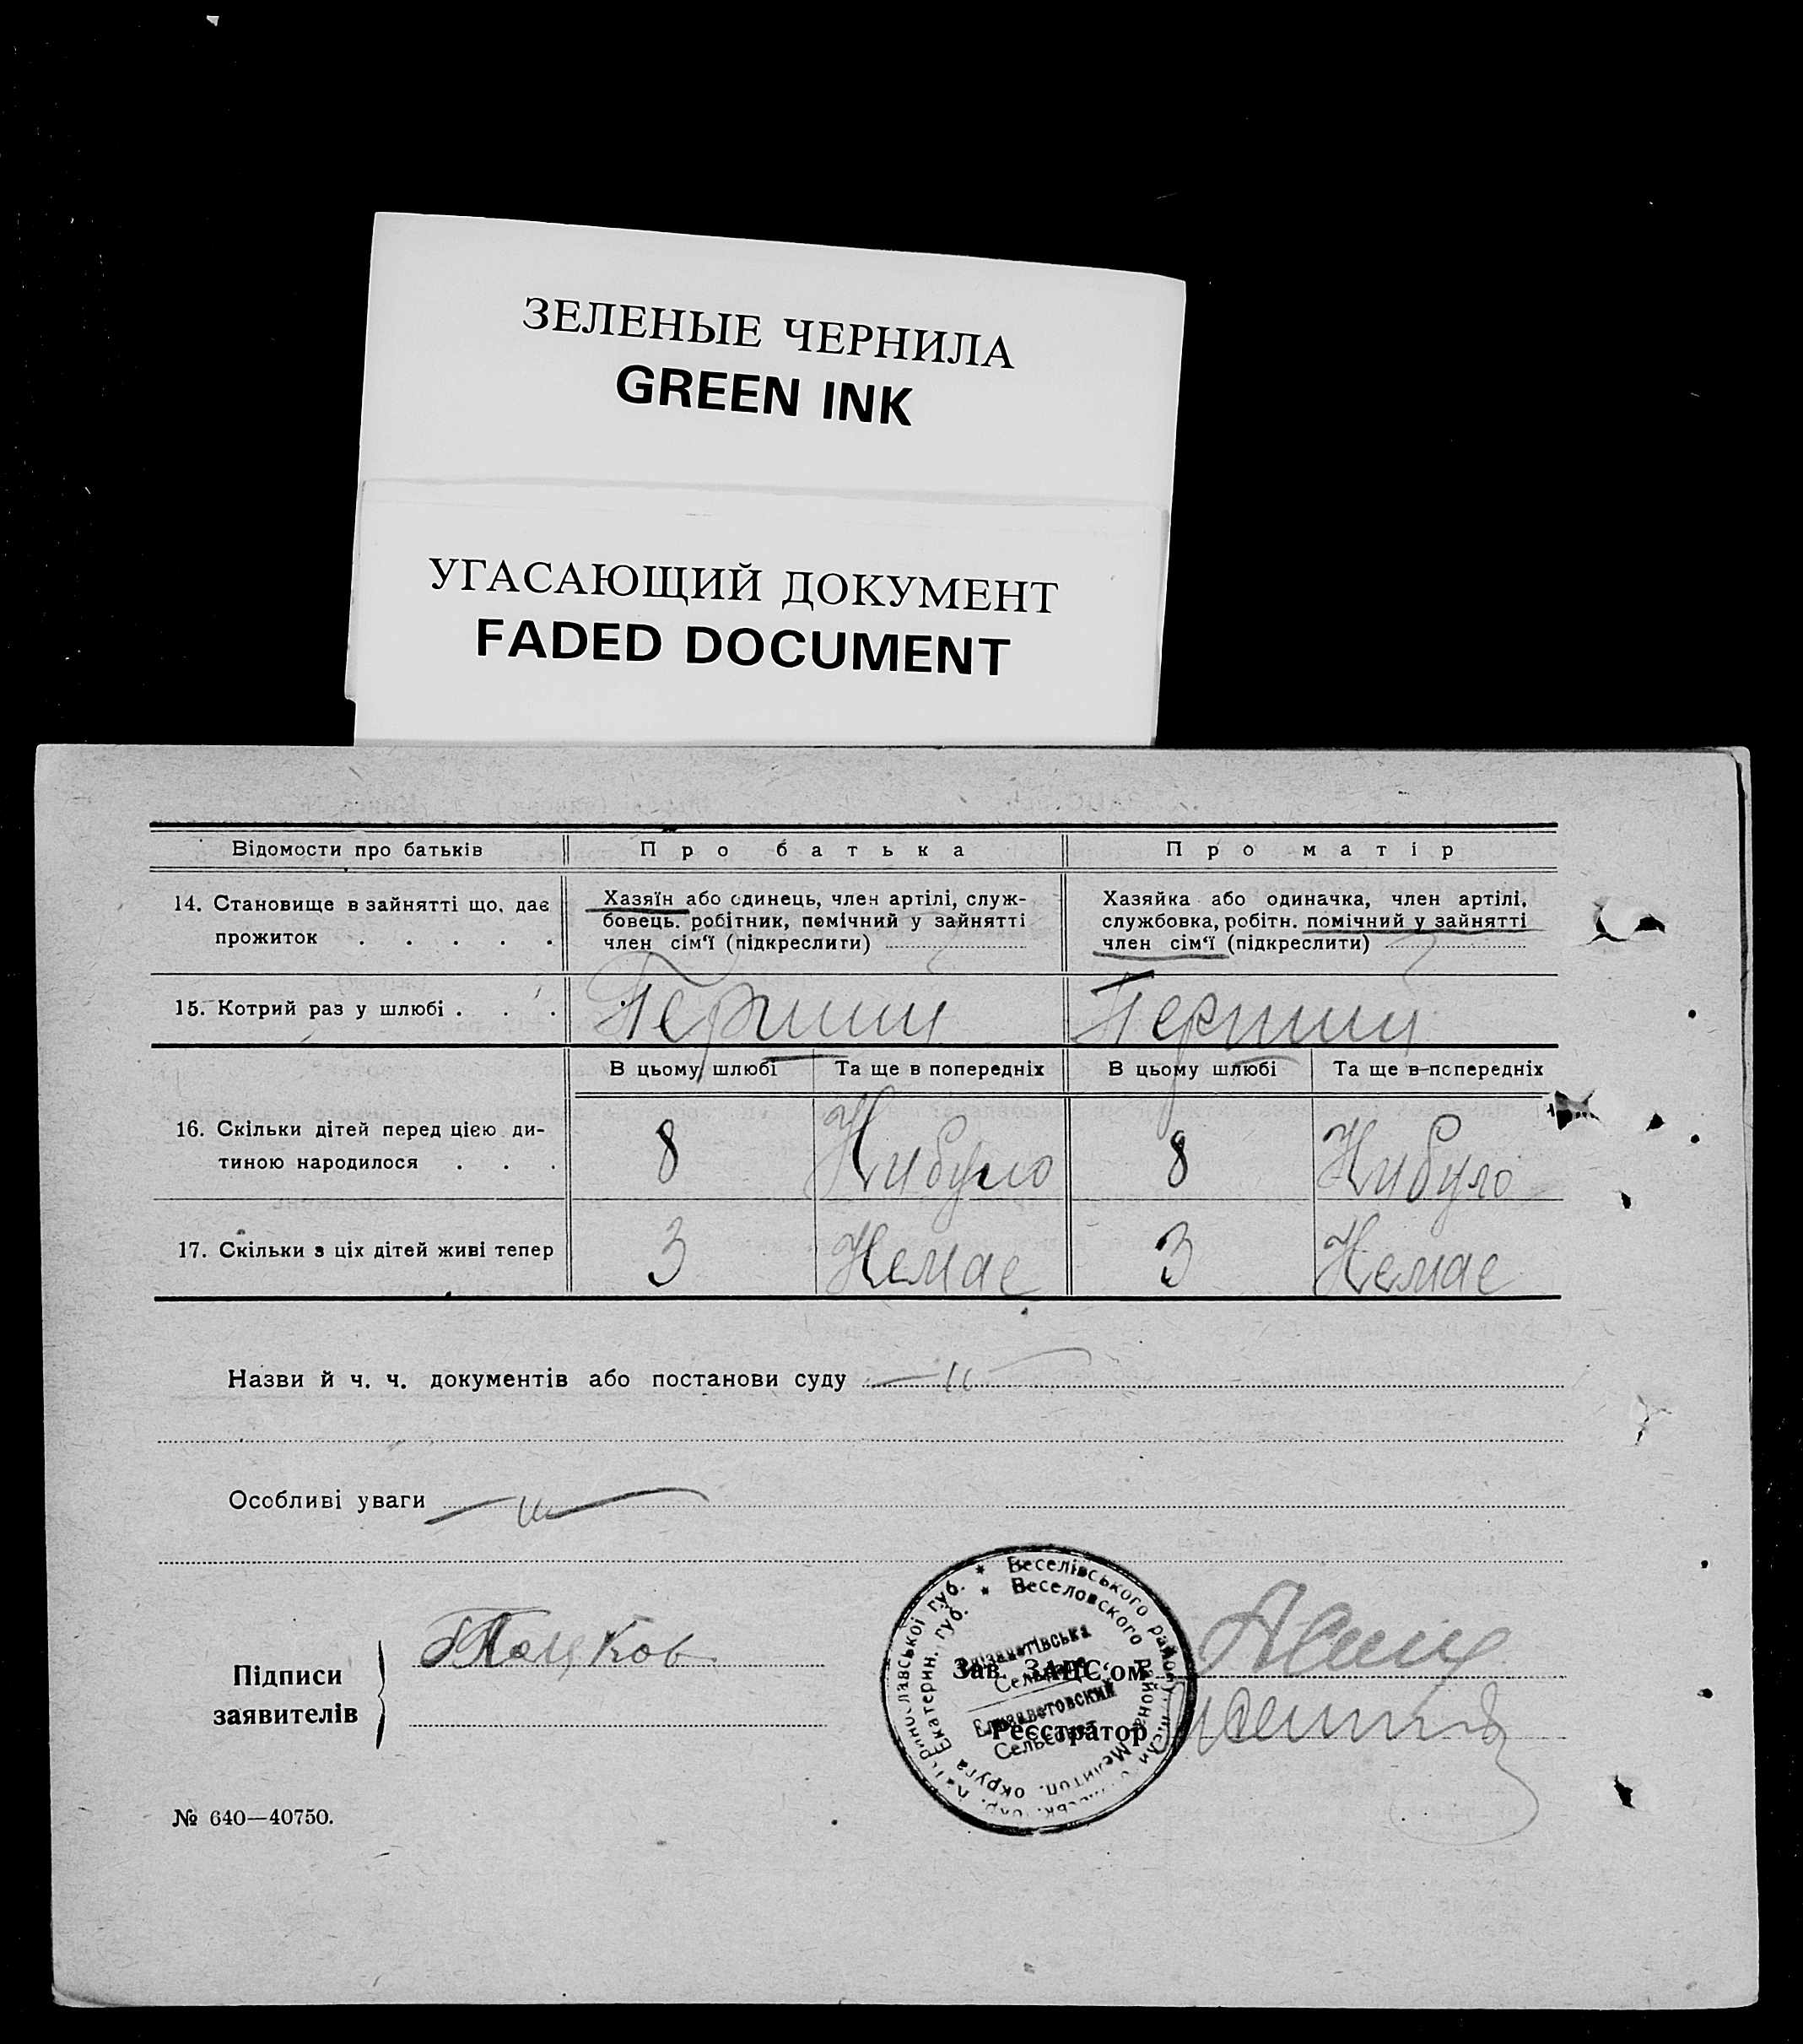 ЗЕЛЕНЫЕ ЧЕРНИЛА
GREEN INK
УГАСАЮЩИЙ ДОКУМЕНТ
FADED DOCUMENT
Відомости про батьків Про батька Про матір
14. Становище в зайнятті що, дає прожиток . . . . .
Хазяїн або одинець, член артілі, служ-
бовець. робітник, помічний у зайнятті
член сім'ї (підкреслити)
Хазяйка або одиначка, член артілі,
службовка, робітн. помічний у зайнятті
член сім'ї (підкреслити)
15. Котрий раз у шлюбі . . . Перший Перший
В цьому шлюбі Та ще в попередніх В цьому шлюбі Та ще в попередніх
16. Скільки дітей перед цією ди-
тиною народилося . . . 8 Нибуло 8 Нибуло
17. Скільки з ціх дітей живі тепер 3 Немає 3 Немає
Назви й ч. ч. документів або постанови суду — " —
Особливі уваги — " —
Підписи
заявителів
Зав. ЗАПС'ом
Реєстратор
Веселівського району
Веселовского района Мелитоп. округа Екатерин. губ.
Сельрада
Елизаветовский
Сельсовет
№ 640—40750.